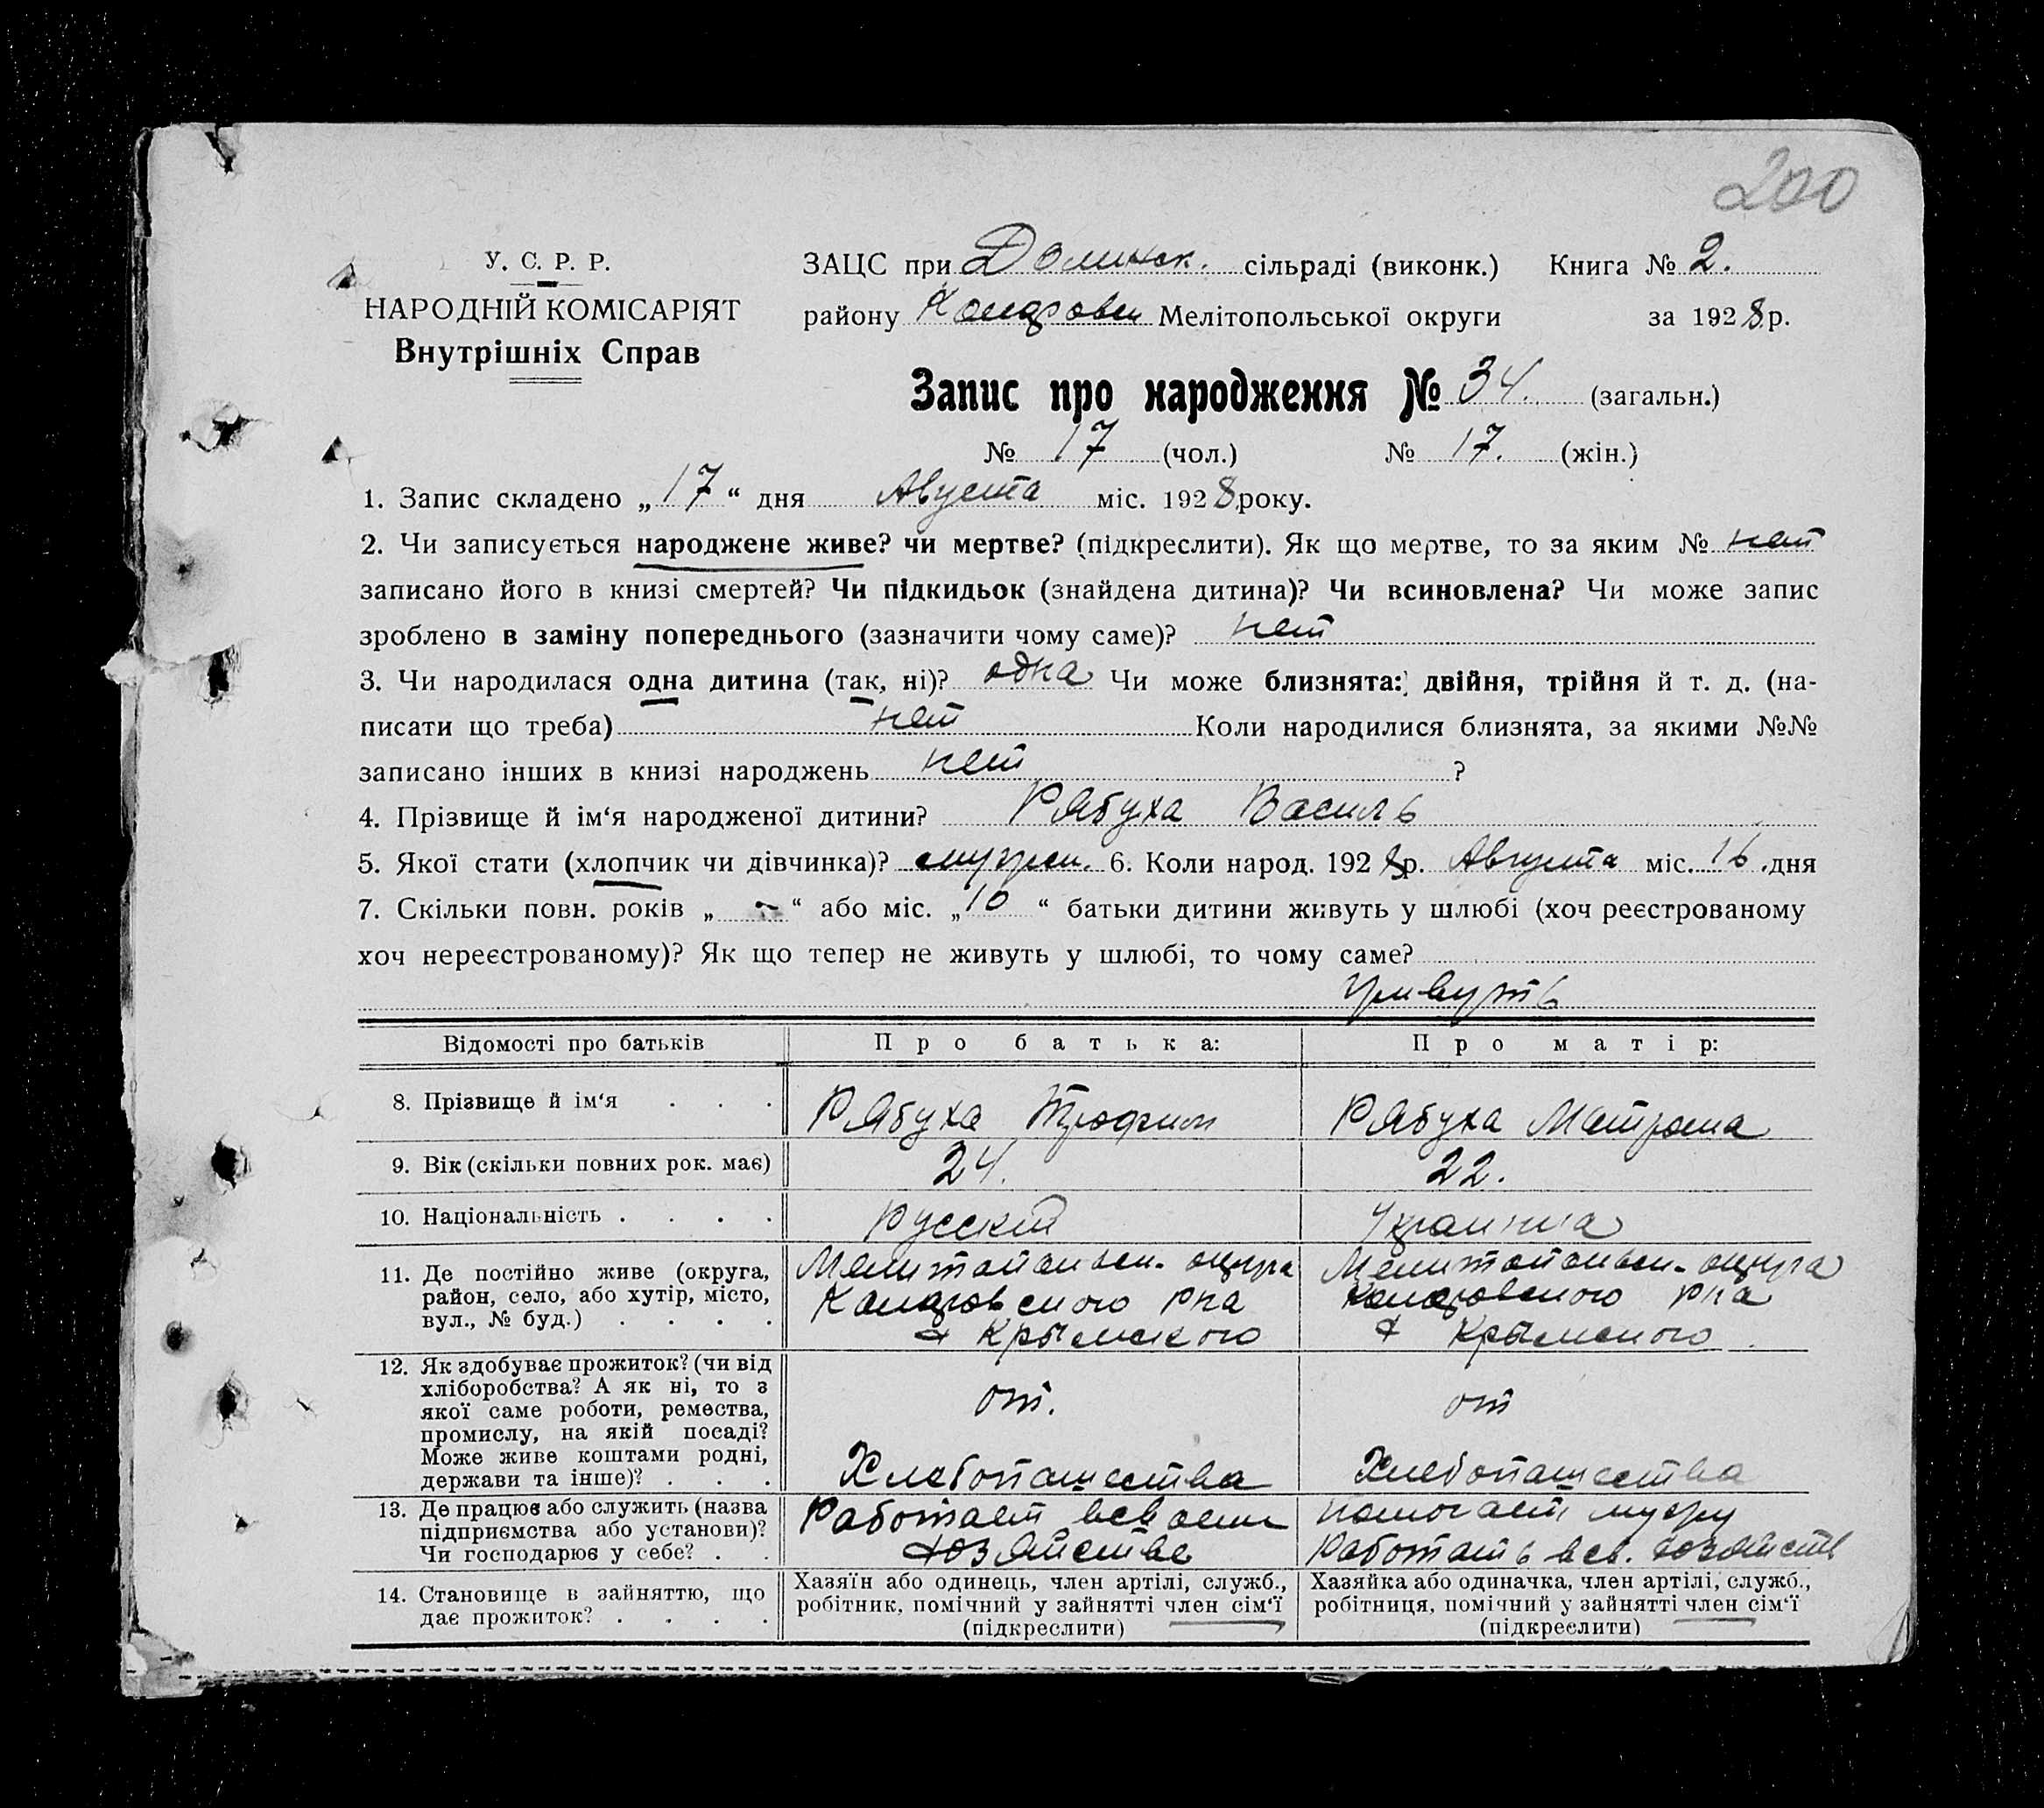 200
У. С. Р. Р.
НАРОДНІЙ КОМІСАРІЯТ
Внутрішніх Справ
ЗАЦС при Долинск. сільраді (виконк.) Книга № 2.
району Мелітопольської округи за 1928 р.
Запис про народження № 34. (загальн.)
№ 17 (чол.) № 17. (жін.)
1. Запис складено „17“ дня Августа міс. 1928 року.
2. Чи записується народжене живе? чи мертве? (підкреслити). Як що мертве, то за яким № нет
записано його в книзі смертей? Чи підкидьок (знайдена дитина)? Чи всиновлена? Чи може запис
зроблено в заміну попереднього (зазначити чому саме)? нет
3. Чи народилася одна дитина (так, ні)? одна Чи може близнята: двійня, трійня й т. д. (на-
писати що треба) нет Коли народилися близнята, за якими №№
записано інших в книзі народжень нет ?
4. Прізвище й ім‘я народженої дитини? Рябуха Василь
5. Якої стати (хлопчик чи дівчинка)? мужск. 6. Коли народ. 1928 р. Августа міс. 16 дня
7. Скільки повн. років „ - “ або міс. „10“ батьки дитини живуть у шлюбі (хоч реєстрованому
хоч нереєстрованому)? Як що тепер не живуть у шлюбі, то чому саме?
Відомості про батьків Про батька: Про матір:
8. Прізвище й ім‘я . . . Рябуха Трофим Рябуха Матрона
9. Вік (скільки повних рок. має) 24. 22.
10. Національність . . . . Русский Украинка
11. Де постійно живе (округа, Мелитопольск. округа Мелитопольск. округа
район, село, або хутір, місто, Р-на Р-на
вул., № буд.) . . . . х Крымского х Крымского
12. Як здобуває прожиток? (чи від
хліборобства? А як ні, то з
якої саме роботи, ремества, от. от
промислу, на якій посаді?
Може живе коштами родні,
держави та інше)? . . . Хлебопашества Хлебопашества
13. Де працює або служить (назва Работает в своем помогает мужу
підприємства або установи)? хозяйстве Работать в св. хозяйств
Чи господарює у себе? . .
14. Становище в зайняттю, що Хазяїн або одинець, член артілі, служб., Хазяйка або одиначка, член артілі, служб.,
дає прожиток? . . . . робітник, помічний у зайнятті член сім‘ї робітниця, помічний у зайнятті член сім‘ї
(підкреслити) (підкреслити)